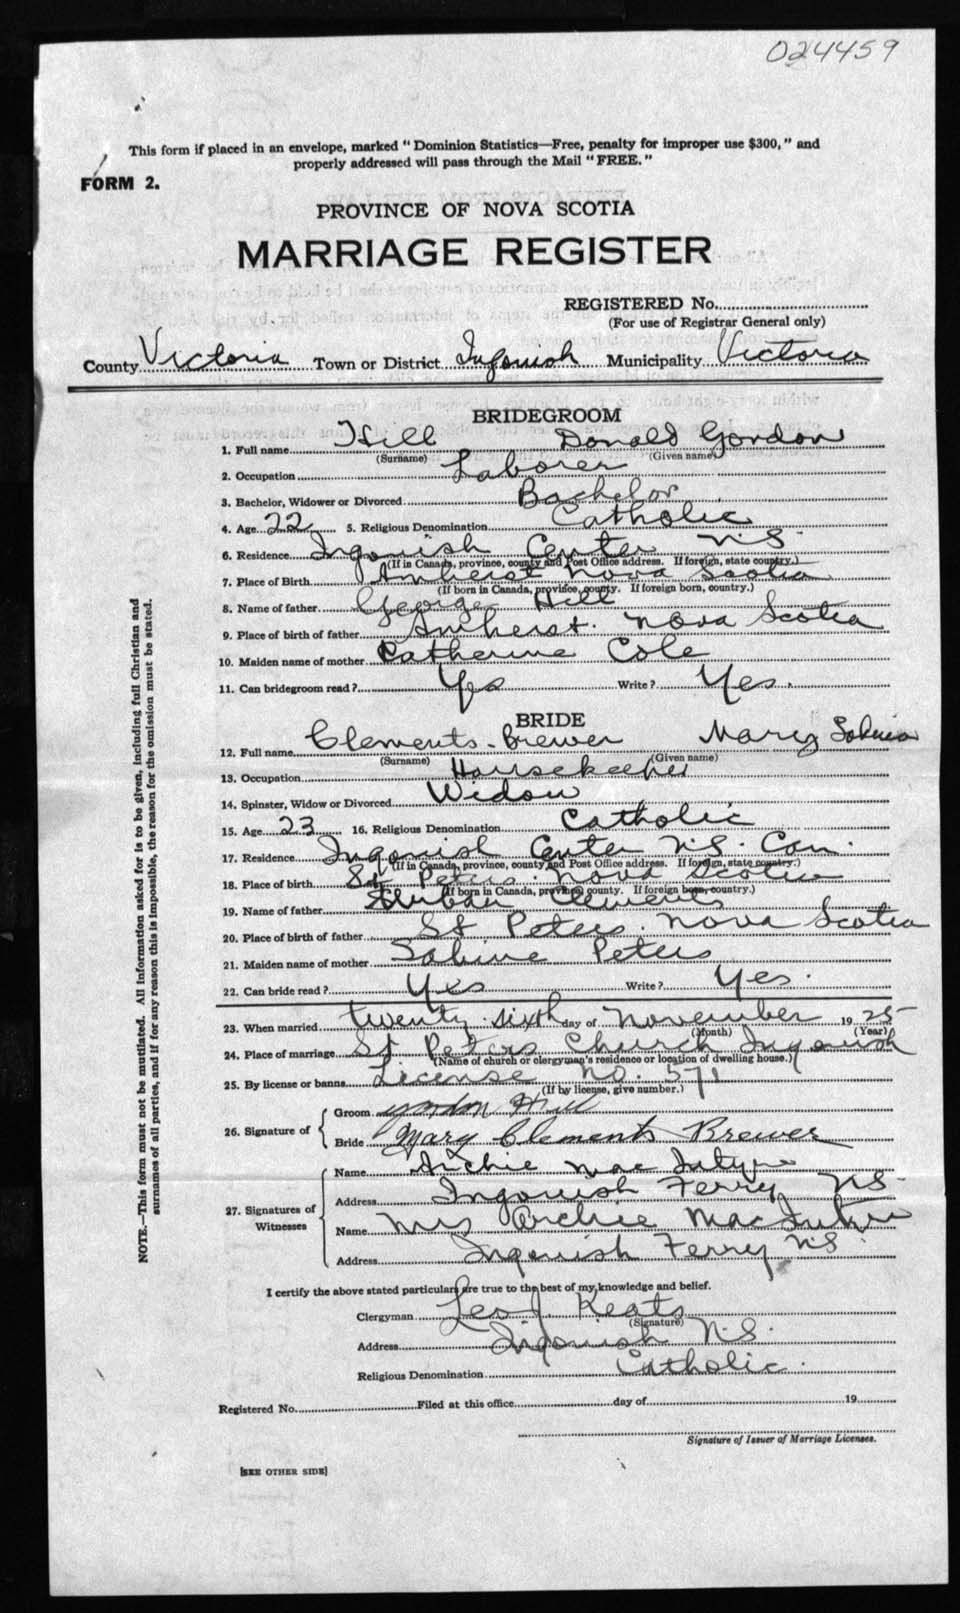 024459
This form if placed in an envelope, marked "Dominion Statistics—Free, penalty for improper use $300," and
properly addressed will pass through the Mail "FREE."
FORM 2.
PROVINCE OF NOVA SCOTIA
MARRIAGE REGISTER
REGISTERED No.
(For use of Registrar General only)
County Victoria Town or District Ingonish Municipality Victoria
BRIDEGROOM
1. Full name Hill Donald Gordon
(Surname) (Given name)
2. Occupation Laborer
3. Bachelor, Widower or Divorced Bachelor
4. Age 22 5. Religious Denomination Catholic
6. Residence Ingonish Center N.S.
(If in Canada, province, county and Post Office address. If foreign, state country.)
7. Place of Birth Amherst Nova Scotia
(If born in Canada, province, county. If foreign born, country.)
8. Name of father George Hill
9. Place of birth of father Amherst. Nova Scotia
10. Maiden name of mother Catherine Cole
11. Can bridegroom read? Yes Write? Yes.
BRIDE
12. Full name Clements-Brewer Mary Sabina
(Surname) (Given name)
13. Occupation Housekeeper
14. Spinster, Widow or Divorced Widow
15. Age 23 16. Religious Denomination Catholic
17. Residence Ingonish Center N.S. Can.
(If in Canada, province, county and Post Office address. If foreign, state country.)
18. Place of birth St Peters. Nova Scotia
(If born in Canada, province county. If foreign born, country.)
19. Name of father Clements
20. Place of birth of father St Peters. Nova Scotia
21. Maiden name of mother Sabine Peters
22. Can bride read? Yes Write? Yes.
23. When married twenty-sixth day of November 1925
(Month) (Year)
24. Place of marriage St Peters Church Ingonish
(Name of church or clergyman's residence or location of dwelling house.)
25. By license or banns License No. 571
(If by license, give number.)
26. Signature of
Groom Gordon Hill
Bride Mary Clements Brewer
27. Signatures of Witnesses
Name Archie MacIntyre
Address Ingonish Ferry N.S.
Name Mrs Archie MacIntyre
Address Ingonish Ferry N.S.
I certify the above stated particulars are true to the best of my knowledge and belief.
Clergyman Leo J. Keats
(Signature)
Address Ingonish N.S.
Religious Denomination Catholic.
Registered No. Filed at this office day of 19
Signature of Issuer of Marriage Licenses.
[SEE OTHER SIDE]
NOTE.—This form must not be mutilated. All information asked for is to be given, including full Christian and
surnames of all parties, and if for any reason this is impossible, the reason for the omission must be stated.